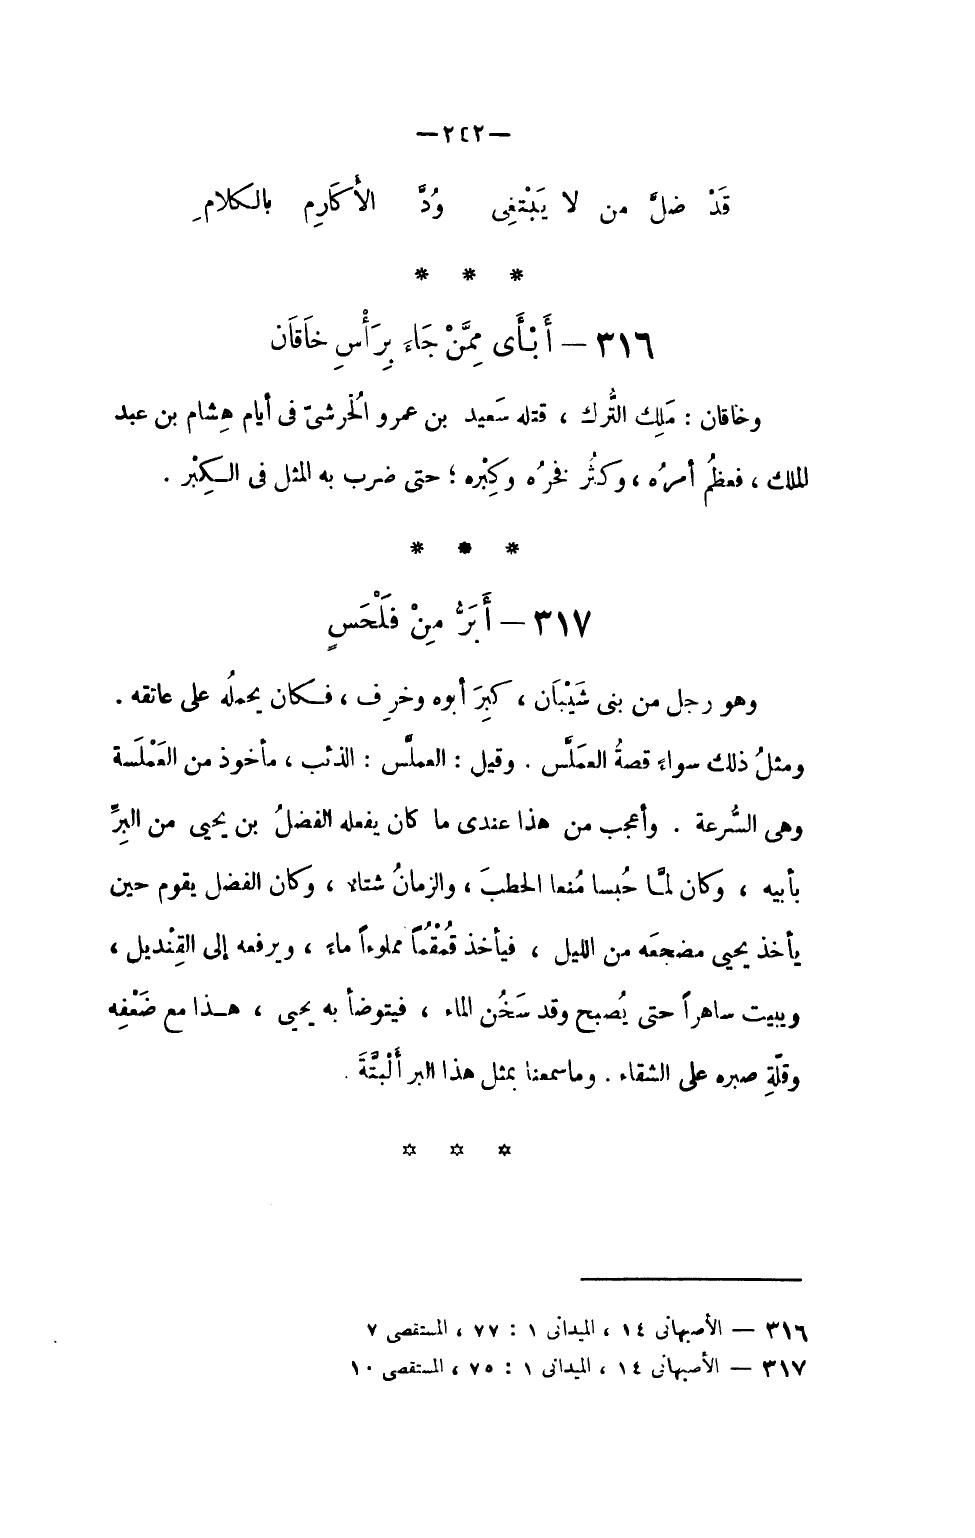 —٢٤٢—
قَدْ ضلَّ من لا يَبْتغِى وُدَّ الأَكَارِم بالكلامِ
* * *
٣١٦ – أَبْأَى مِمَّنْ جَاءَ بِرَأْسِ خَاقَان
وخاقان : مَلِك التُّرك ، قتله سَعيد بن عمرو الُخرشىّ فى أيام هِشام بن عبد
الملك ، فعظُم أمرُه ، وكثُر فخرُه وكِبْره ؛ حتى ضرب به المثل فى الكِبْر .
* * *
٣١٧ – أَبَرُّ مِنْ فَلْحَسٍ
وهو رجل من بنى شَيْبَان ، كبِرَ أبوه وخرِف ، فكان يحملُه على عاتقه .
ومثلُ ذلك سواءَ قصةُ العمَلَّس . وقيل : العملَّس : الذئب ، مأخوذ من العَمْلَسة
وهى السُّرعة . وأعجب من هذا عندى ما كان يفعله الفضلُ بن يحيى من البرِّ
بأبيه ، وكان لمَّا حُبسا مُنعا الحطبَ ، والزمانُ شتاء ، وكان الفضل يقوم حين
يأخذ يحيى مضجعَه من الليل ، فيأخذ قُمْقُمًا مملوءاً ماءً ، ويرفعه إلى القِنْديل ،
ويبيت ساهراً حتى يُصبح وقد سَخُن الماء ، فيتوضأ به يحيى ، هـذا مع ضَعْفِه
وقلّةِ صبره على الشقاء . وما سمعنا بمثل هذا البر أَلْبتَّةَ .
* * *
٣١٦ — الأصبهانى ١٤ ، الميدانى ١ : ٧٧ ، المستقصى ٧
٣١٧ — الأصبهانى ١٤ ، الميدانى ١ : ٧٥ ، المستقصى ١٠